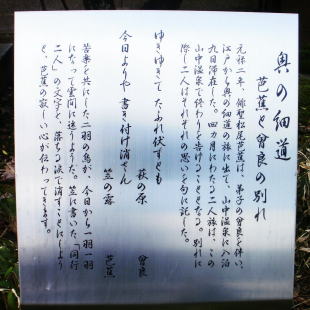 奥の細道
芭蕉と曾良の別れ
元禄二年、俳聖松尾芭蕉は、弟子の曾良を伴い、
江戸から奥の細道の旅に出て、山中温泉に入泊
九日滞在した。四カ月にわたる二人旅は、この
山中温泉で終わりを告げることとなる。別れに
際し二人はそれぞれの思いを句に記した。
ゆきゆきて たふれ伏すとも
萩の原 曾良
今日よりや 書き付け消さん
笠の露 芭蕉
苦楽を共にした二羽の鳥が、今日から一羽一羽
になって雲間に迷うようだ。笠に書いた「同行
二人」の文字を、落ちる涙で消すことにしよう
と、芭蕉の寂しい心が伝わってきます。